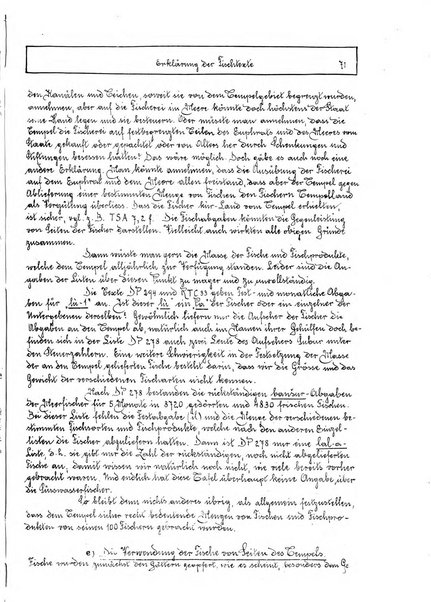 Erklärung der Fischtexte 71
den Kanälen und Teichen, soweit sie von dem Tempelgebiet begrenzt wurden,
annehmen, aber auf die Fischerei im Meere könnte doch höchstens der Staat
seine Hand legen und sie besteuern. Oder müsste man annehmen, dass die
Tempel die Fischerei auf festbegrenzten Teilen des Euphrats und des Meeres vom
Staate gekauft oder gepachtet oder von Alters her durch Schenkungen und
Stiftungen besessen hätten? Das wäre möglich. Doch gäbe es auch noch eine
andere Erklärung. Man könnte annehmen, dass die Ausübung der Fischerei
auf dem Euphrat und dem Meere allen freistand, dass aber der Tempel gegen
Ablieferung einer bestimmten Menge Fische den Fischern Tempelland
als Vergütung überliess. Dass die Fischer kur-Land vom Tempel erhielten,
ist sicher, vgl. z. B. TSA 7, 2 f. Die Fischabgaben könnten die Gegenleistung
von Seiten der Fischer darstellen. Vielleicht auch wirkten alle obigen Gründe
zusammen.
Dann wüsste man gern die Masse der Fische und Fischprodukte,
welche dem Tempel alljährlich zur Verfügung standen. Leider sind die An-
gaben der Listen über diesen Punkt zu mager und zu unvollständig.
Die Texte DP 298 und RTC 33 geben Fest- und monatliche Abga-
ben für lù-1 an. Ist dieser lù ein der Fischer oder ein einzelner der
Untergebenen derselben? Gewöhnlich liefern nur die Aufseher der Fischer die
Abgaben an den Tempel ab, natürlich auch im Namen ihrer Gehilfen doch be-
finden sich in der Liste DP 278 auch zwei Leute des Aufsehers Subur unter
den Steuerzahlern. Eine weitere Schwierigkeit in der Festsetzung der Masse
der an den Tempel gelieferten Fische besteht darin, dass wir die Grösse und das
Gewicht der verschiedenen Fischarten nicht kennen.
Nach DP 278 bestanden die rückständigen banšur-Abgaben
der Meerfischer für 5 Monate in 8720 gedörrten und 4830 frischen Fischen.
In dieser Liste fehlen die Festabgabe (il) und die Menge der verschiedenen be-
stimmten Fischsorten und Fischprodukte, welche nach den anderen Einzel-
listen die Fischer abzuliefern hatten. Dann ist DP 278 nur eine lal-a-
Liste, d. h. sie gibt nur die Zahl der rückständigen, noch nicht abgelieferten
Fische an, damit wissen wir natürlich noch nicht, wie viele bereits vorher
gebracht waren. Und endlich hat diese Tafel überhaupt keine Angabe über
die Süsswasserfischer.
So bleibt denn nichts anderes übrig, als allgemein festzustellen,
dass dem Tempel sicher recht bedeutende Mengen von Fischen und Fischpro-
dukten von seinen 100 Fischern gebracht wurden.
e) Die Verwendung der Fische von Seiten des Tempels.
Fische wurden zunächst den Göttern geopfert, wie es scheint, besonders dem Ge